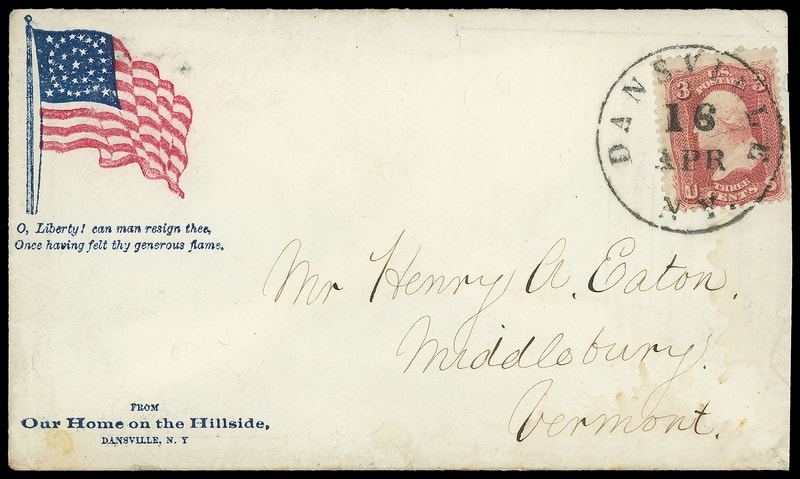 O, Liberty! can man resign thee,
Once having felt thy generous flame.
DANSVILLE
16
APR
N Y.
3 U.S. 3
POSTAGE
THREE
U CENTS
Mr Henry A. Eaton.
Middlebury.
Vermont.
FROM
Our Home on the Hillside,
DANSVILLE, N. Y